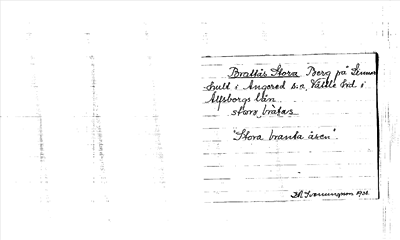 Brattås Stora Berg på Linnar
hult i Angered s:n, Vättle hrd i
Älfsborgs län
stora bråtas
"Stora branta åsen".
1931